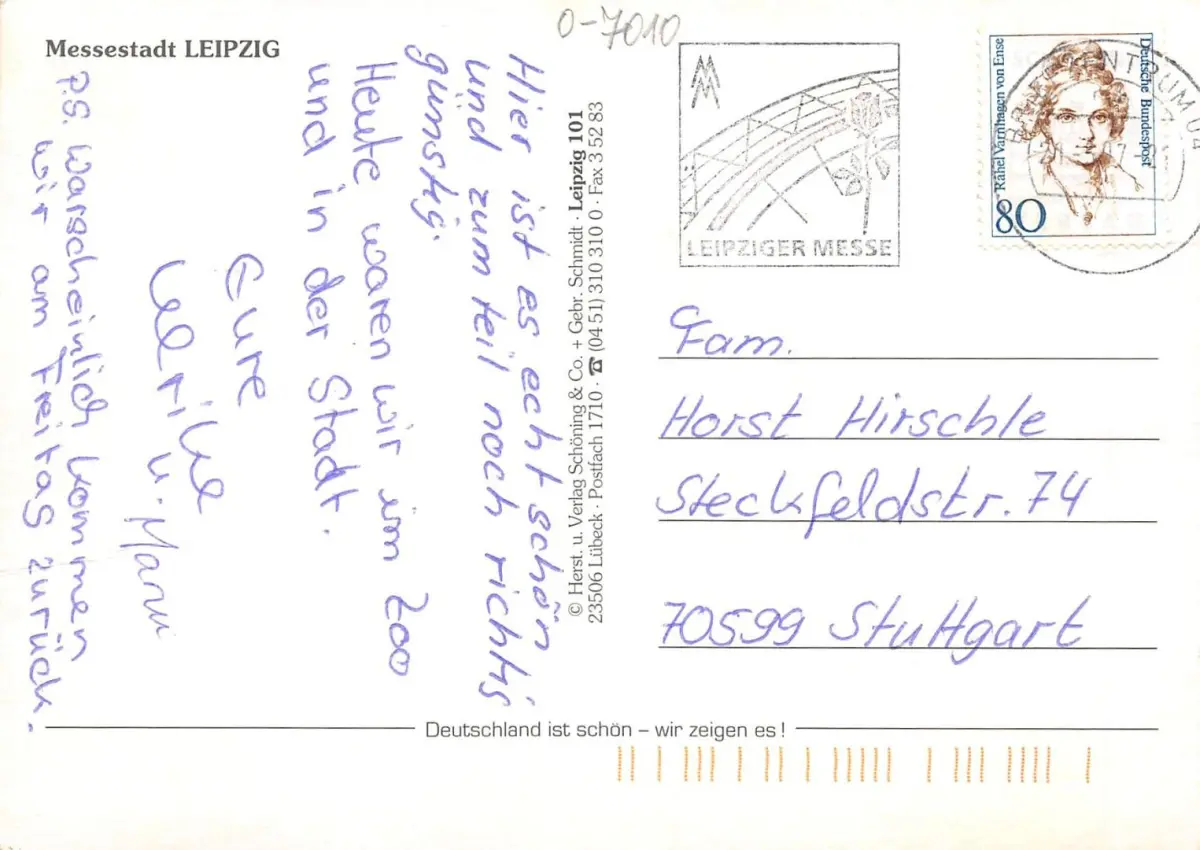 Messestadt LEIPZIG
0-7010
Hier ist es echt schön
und zum teil noch richtig
günstig.
Heute waren wir im Zoo
und in der Stadt.
Eure
Ulrike
u.
P.S. Warscheinlich kommen
wir am Freitag zurück.
© Herst. u. Verlag Schöning & Co. + Gebr. Schmidt · Leipzig 101
23506 Lübeck · Postfach 1710 · ☎ (04 51) 310 310 0 · Fax 3 52 83
LEIPZIGER MESSE
Rahel Varnhagen von Ense
Deutsche Bundespost
80
Fam.
Horst Hirschle
Steckfeldstr. 74
70599 Stuttgart
Deutschland ist schön – wir zeigen es!